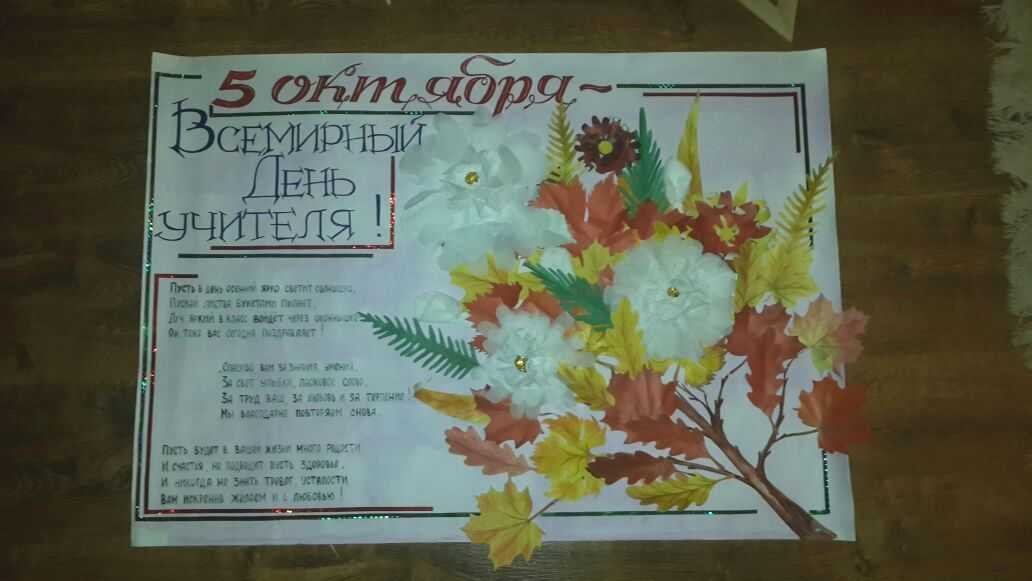 5 октября ~
Всемирный
День
учителя !
Пусть в день осенний ярко светит солнышко,
Пускай листва букетами пылает,
Луч яркий в класс войдёт через окошко
Он тоже вас сегодня поздравляет !
Спасибо вам за знания, умения,
За свет улыбки, ласковое слово,
За труд ваш, за любовь и за терпение !
Мы благодарно повторяем снова.
Пусть будет в вашей жизни много радости
И счастья, не подводит пусть здоровье,
И никогда не знать тревог, усталости
Вам искренне желаем и с любовью !